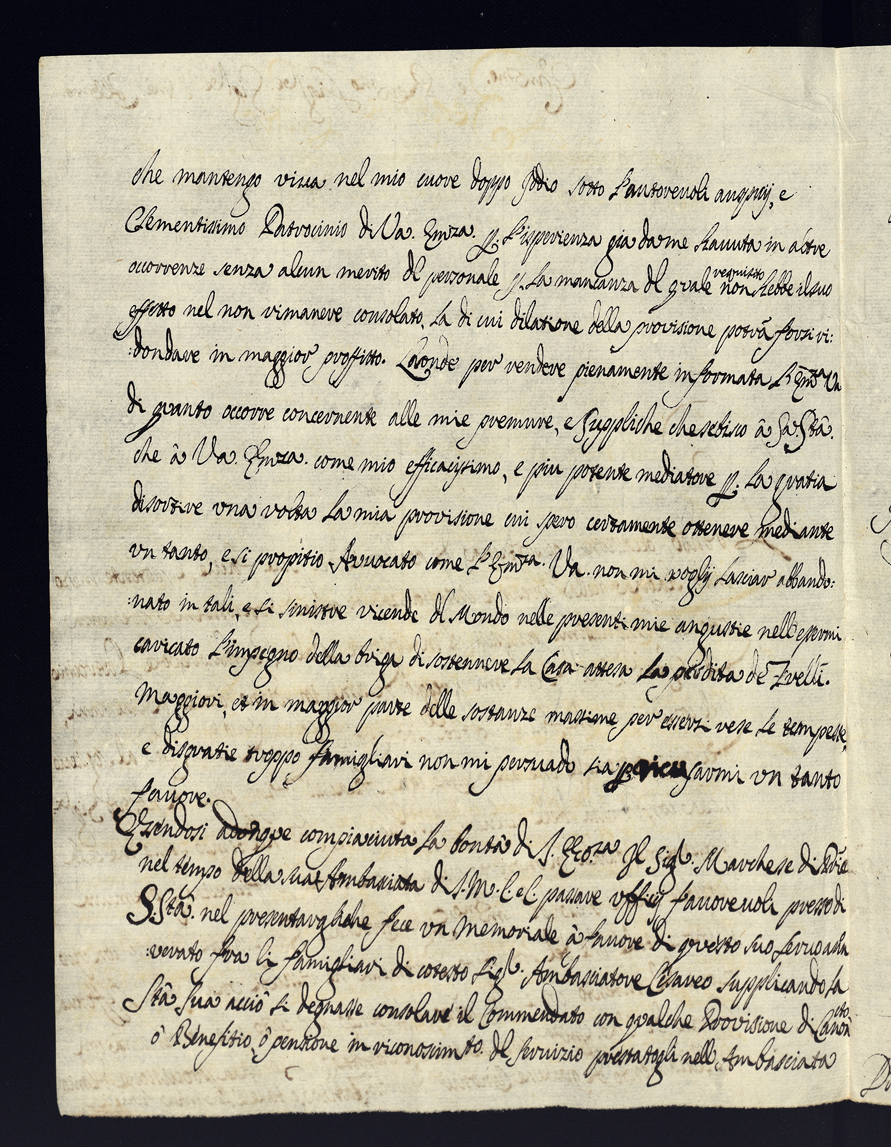 che mantengo viva nel mio cuore doppo Iddio sotto l'autorevoli auspicij, e
Clementissimo Patrocinio di Va. Emza. p. l'isperienza gia da me hauuta in altre
occorrenze senza alcun merito del personale p. la mancanza del quale requisito non hebbe il suo
effetto nel non rimanere consolato, la di cui dilatione della provisione potrà forsi ri:
:dondare in maggior proffitto. Laonde per rendere pienamente informata l'Emza Va
di quanto occorre concernente alle mie premure, e suppliche che à Sa. Stà.
che à Va. Emza. come mio efficacissimo, e piu potente mediatore p. la gratia
di sortire una volta la mia provisione cui spero certamente ottenere mediante
vn tanto, e si propitio Avvocato come l'Emza. Va. non mi vogli lasciar abbando:
:nato in tali, e si sinistre vicende del Mondo nelle presenti mie angustie nell'essermi
caricato l'impegno della briga di sostennere la Casa attesa la perdita de Frelli.
Maggiori, et in maggior parte delle sostanze massime per essersi rese le tempeste,
e disgratie troppo famigliari non mi persuado sia p ricusarmi vn tanto
favore.
Essendosi adonque compiaciuta la bontà di S. Ecc.za Il Sigr. Marchese di Priè
nel tempo della sua Ambasciata di S. M. C. e C. passare vfficij favorevoli presso di
S. Stà. nel presentargli che fece vn Memoriale à favore di questo suo servo
:verato fra li famigliari di cotesto Sigr. Ambasciatore Cesareo supplicando la
Stà Sua acciò si degnasse consolare il Commendato con qualche Provisione di Canonto
ò Benefitio, ò pensione in riconoscimto. del servizio prestatogli nell'Ambasciata